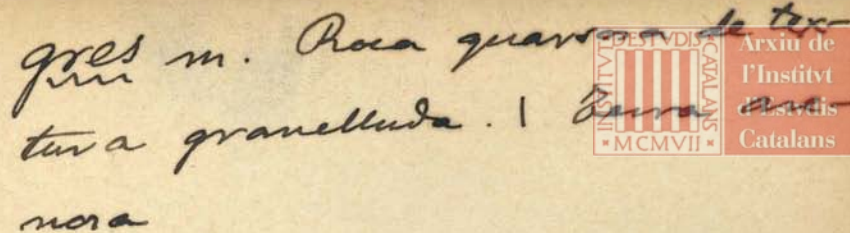 gres m. Roca quarsosa de tex-
tura granelluda. | Terra are-
nosa
INSTITVT D'ESTVDIS CATALANS
MCMVII
Arxiu de
l'Institvt
d'Estvdis
Catalans